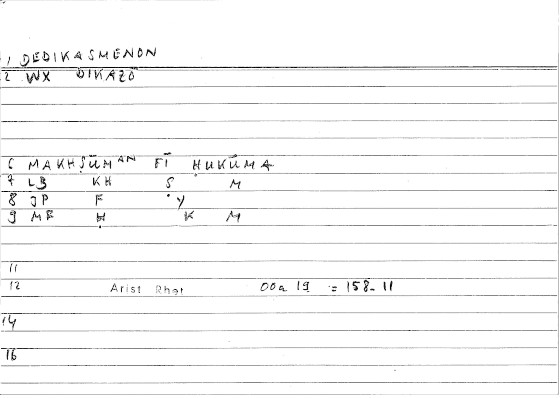 1 DEDIKASMENON
2 WX DIKAZŌ
6 MAKHṢŪMAN FĪ ḤUKŪMA
7 LB KH Ṣ M
8 JP F Y
9 MF Ḥ K M
11
12 Arist Rhet 00a 19 = 158-11
14
16